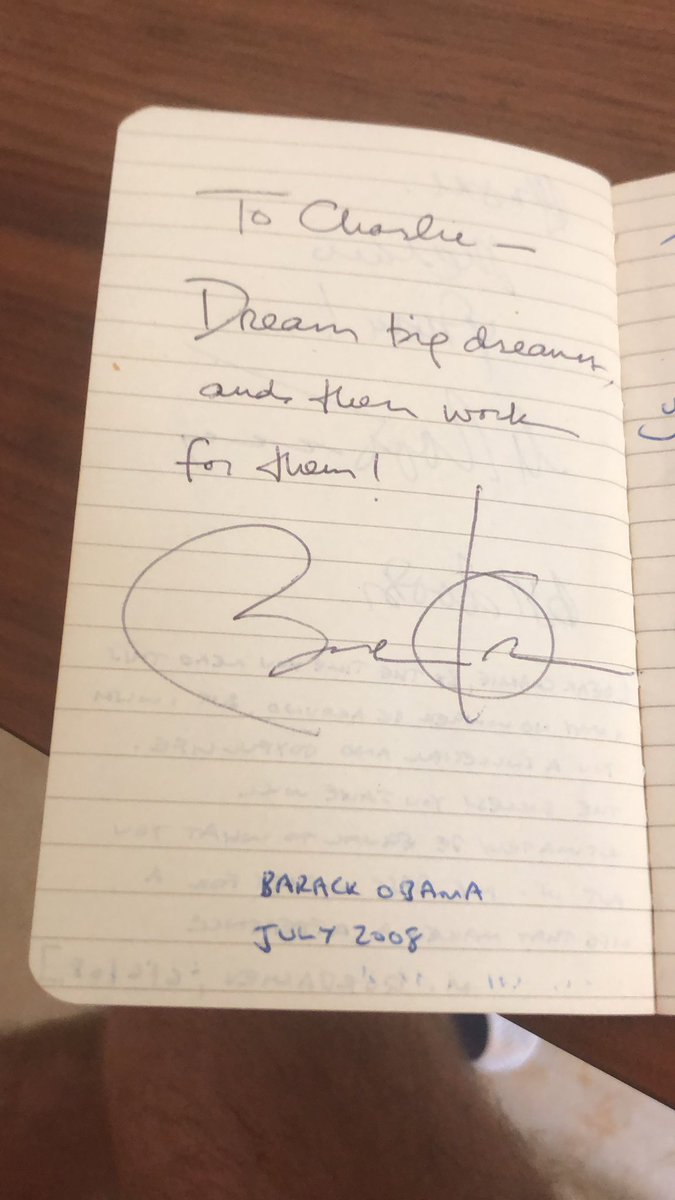 To Charlie —
Dream big dreams,
and then work
for them!
BARACK OBAMA
JULY 2008